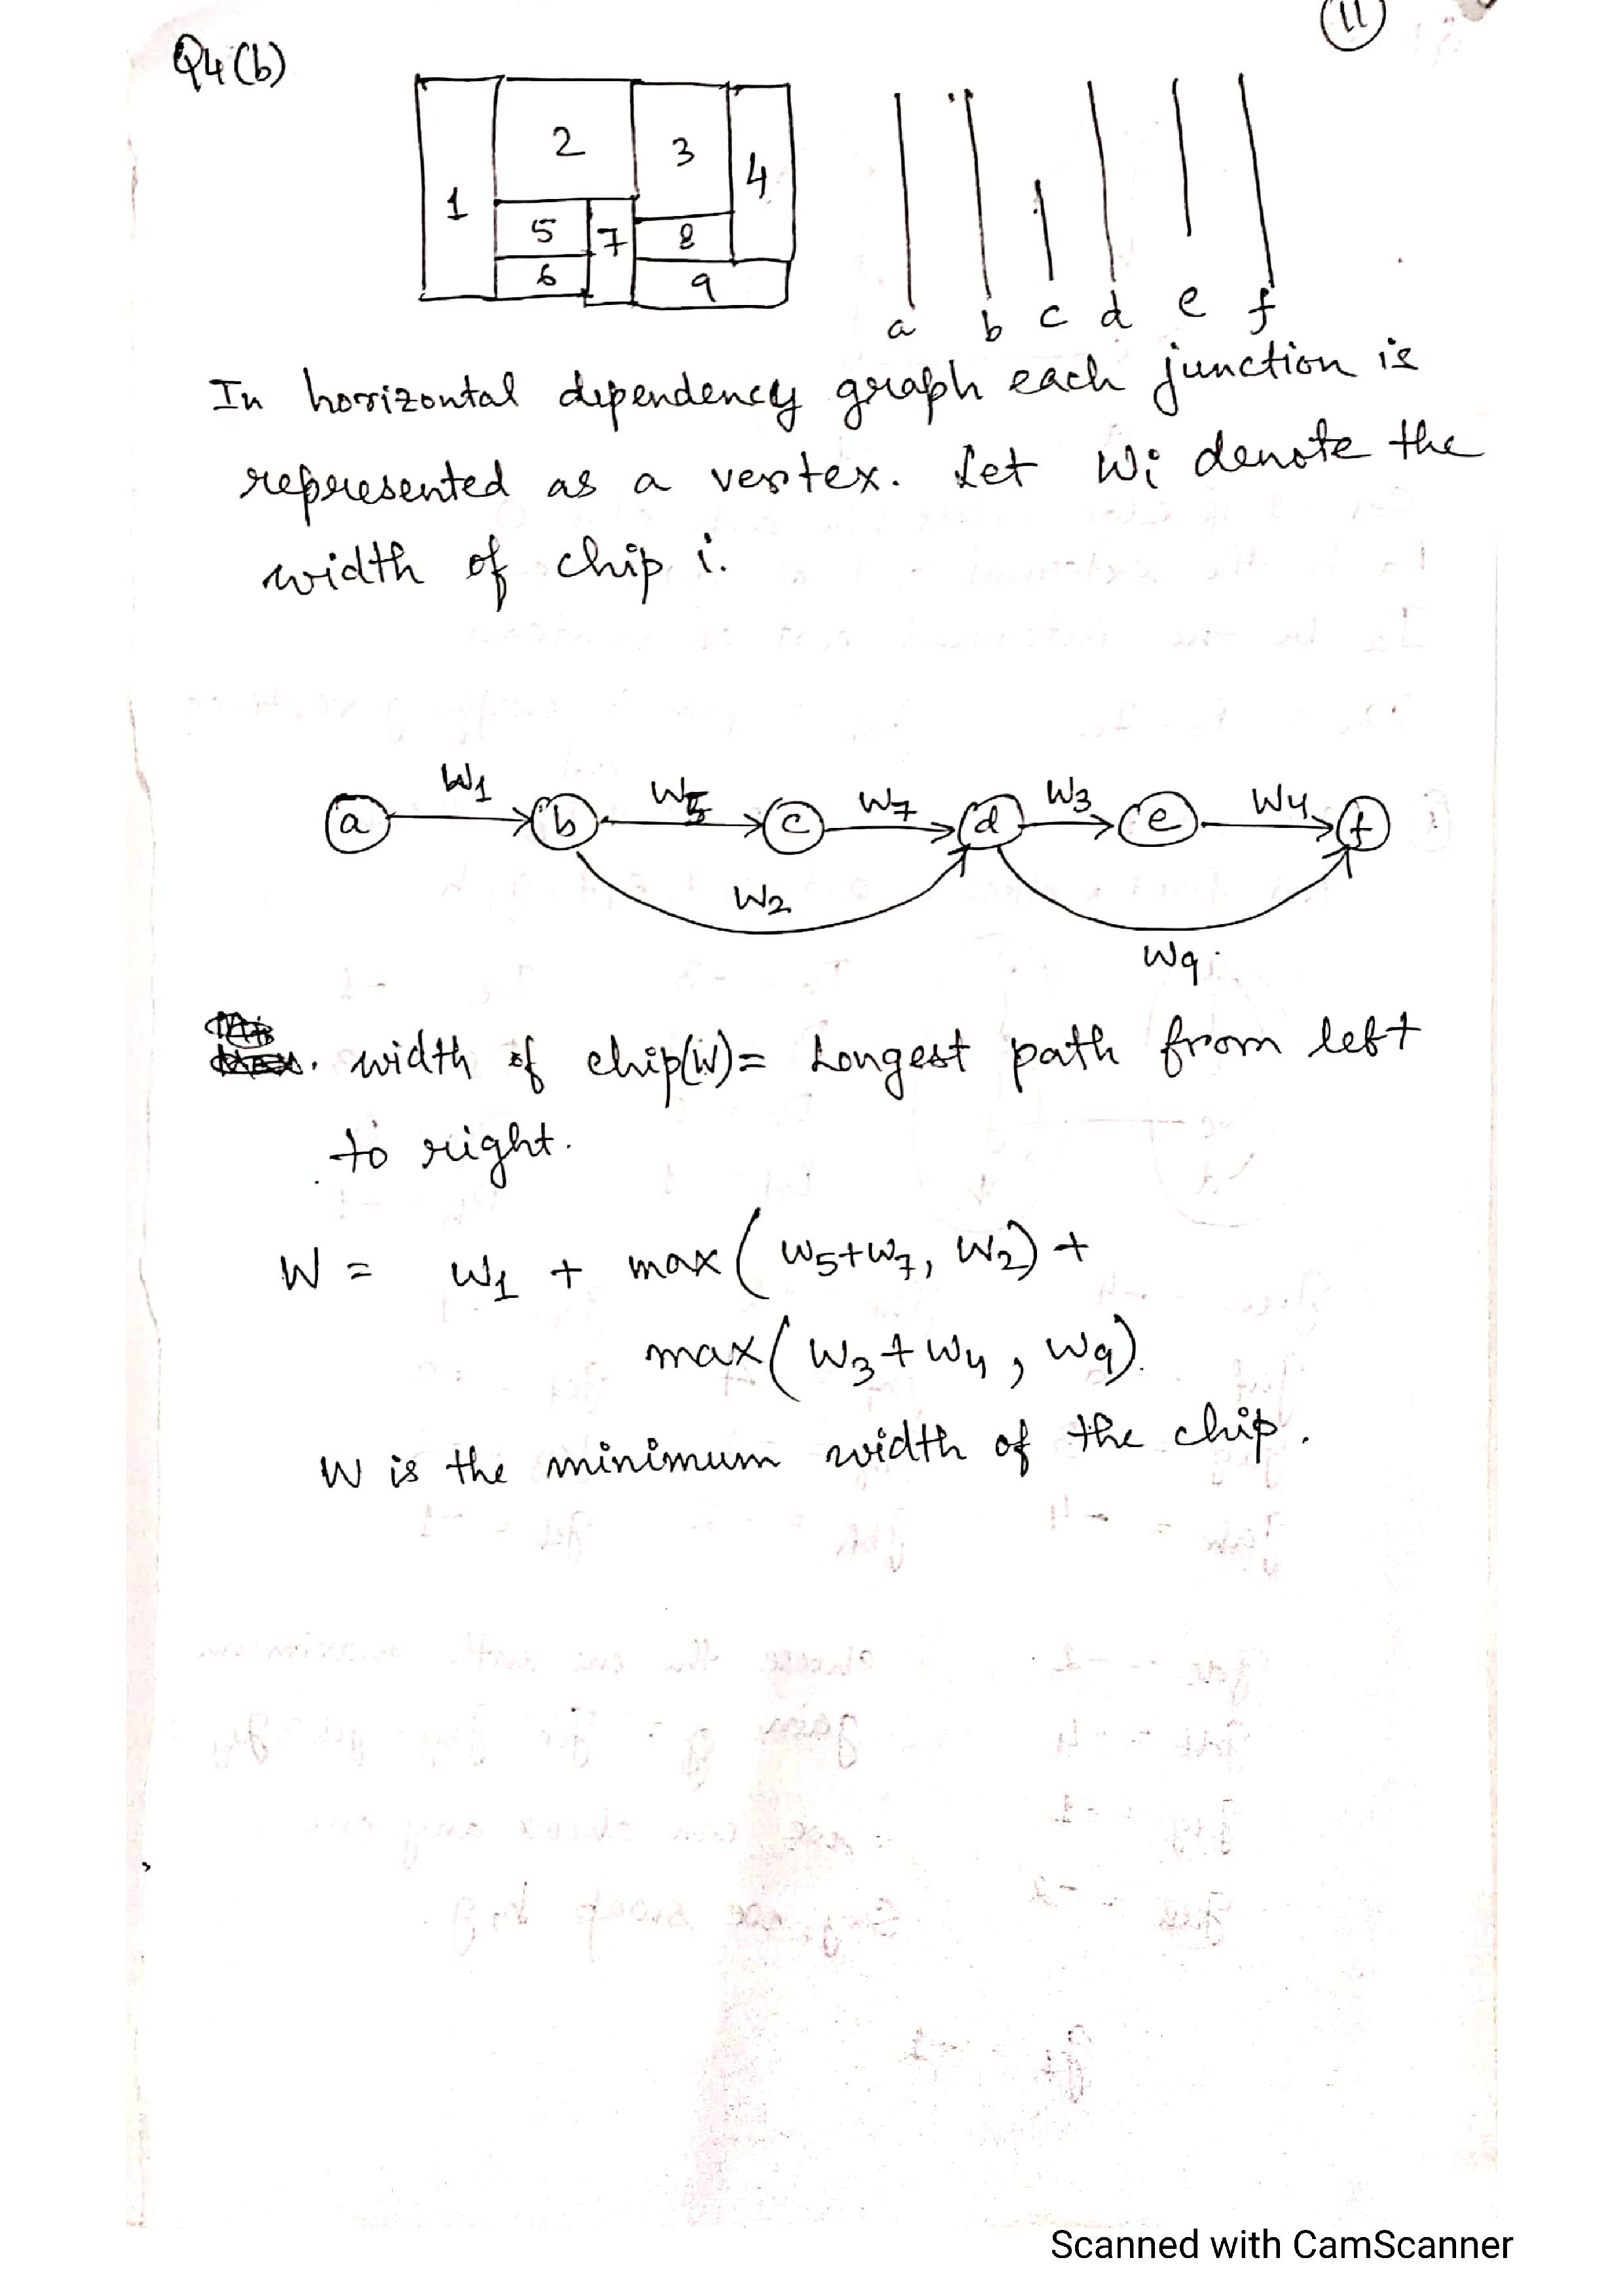 11
Q4(b)
1 2 3 4
5 7 8
6 9
a b c d e f
In horizontal dependency graph each junction is
represented as a vertex. Let Wi denote the
width of chip i.
W1 W5 W7 W3 W4
a b c d e f
W2
W9
width of chip(W) = Longest path from left
to right.
W = W1 + max ( W5+W7, W2) +
max ( W3 + W4 , W9).
W is the minimum width of the chip.
Scanned with CamScanner